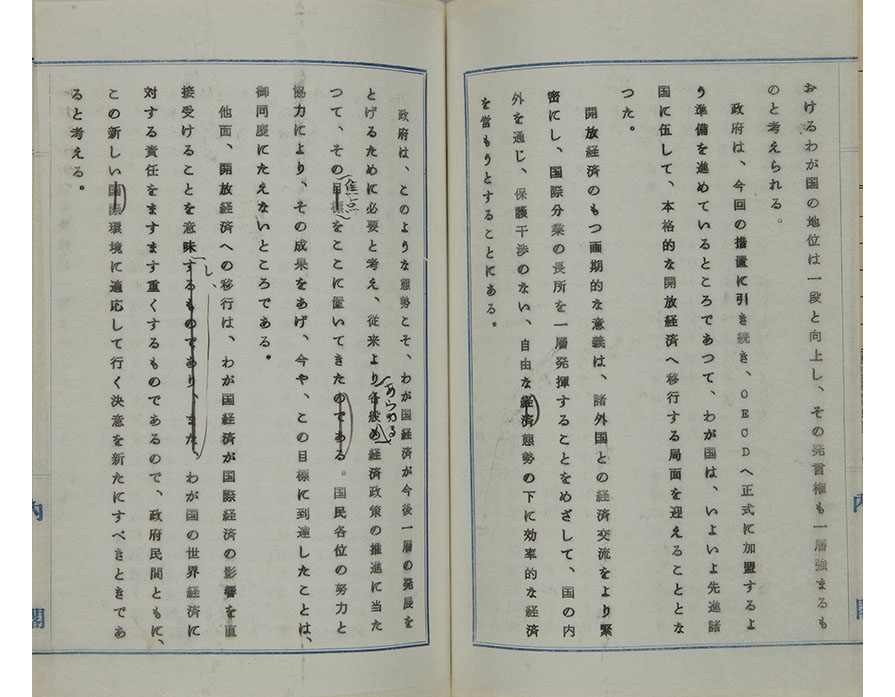 おけるわが国の地位は一段と向上し、その発言権も一層強まるも
のと考えられる。
政府は、今回の措置に引き続き、OECDへ正式に加盟するよ
う準備を進めているところであつて、わが国は、いよいよ先進諸
国に伍して、本格的な開放経済へ移行する局面を迎えることとな
つた。
開放経済のもつ画期的な意義は、諸外国との経済交流をより緊
密にし、国際分業の長所を一層発揮することをめざして、国の内
外を通じ、保護干渉のない、自由な経済態勢の下に効率的な経済
を営もうとすることにある。
政府は、このような態勢こそ、わが国経済が今後一層の発展を
とげるために必要と考え、従来より各般の経済政策の推進に当た
あらゆる
つて、その目標をここに置いてきたのである。国民各位の努力と
焦点
協力により、その成果をあげ、今や、この目標に到達したことは、
御同慶にたえないところである。
他面、開放経済への移行は、わが国経済が国際経済の影響を直
接受けることを意味するものであり、また、わが国の世界経済に
し、
対する責任をますます重くするものであるので、政府民間ともに、
この新しい国際環境に適応して行く決意を新たにすべきときであ
ると考える。
内
閣
内
閣